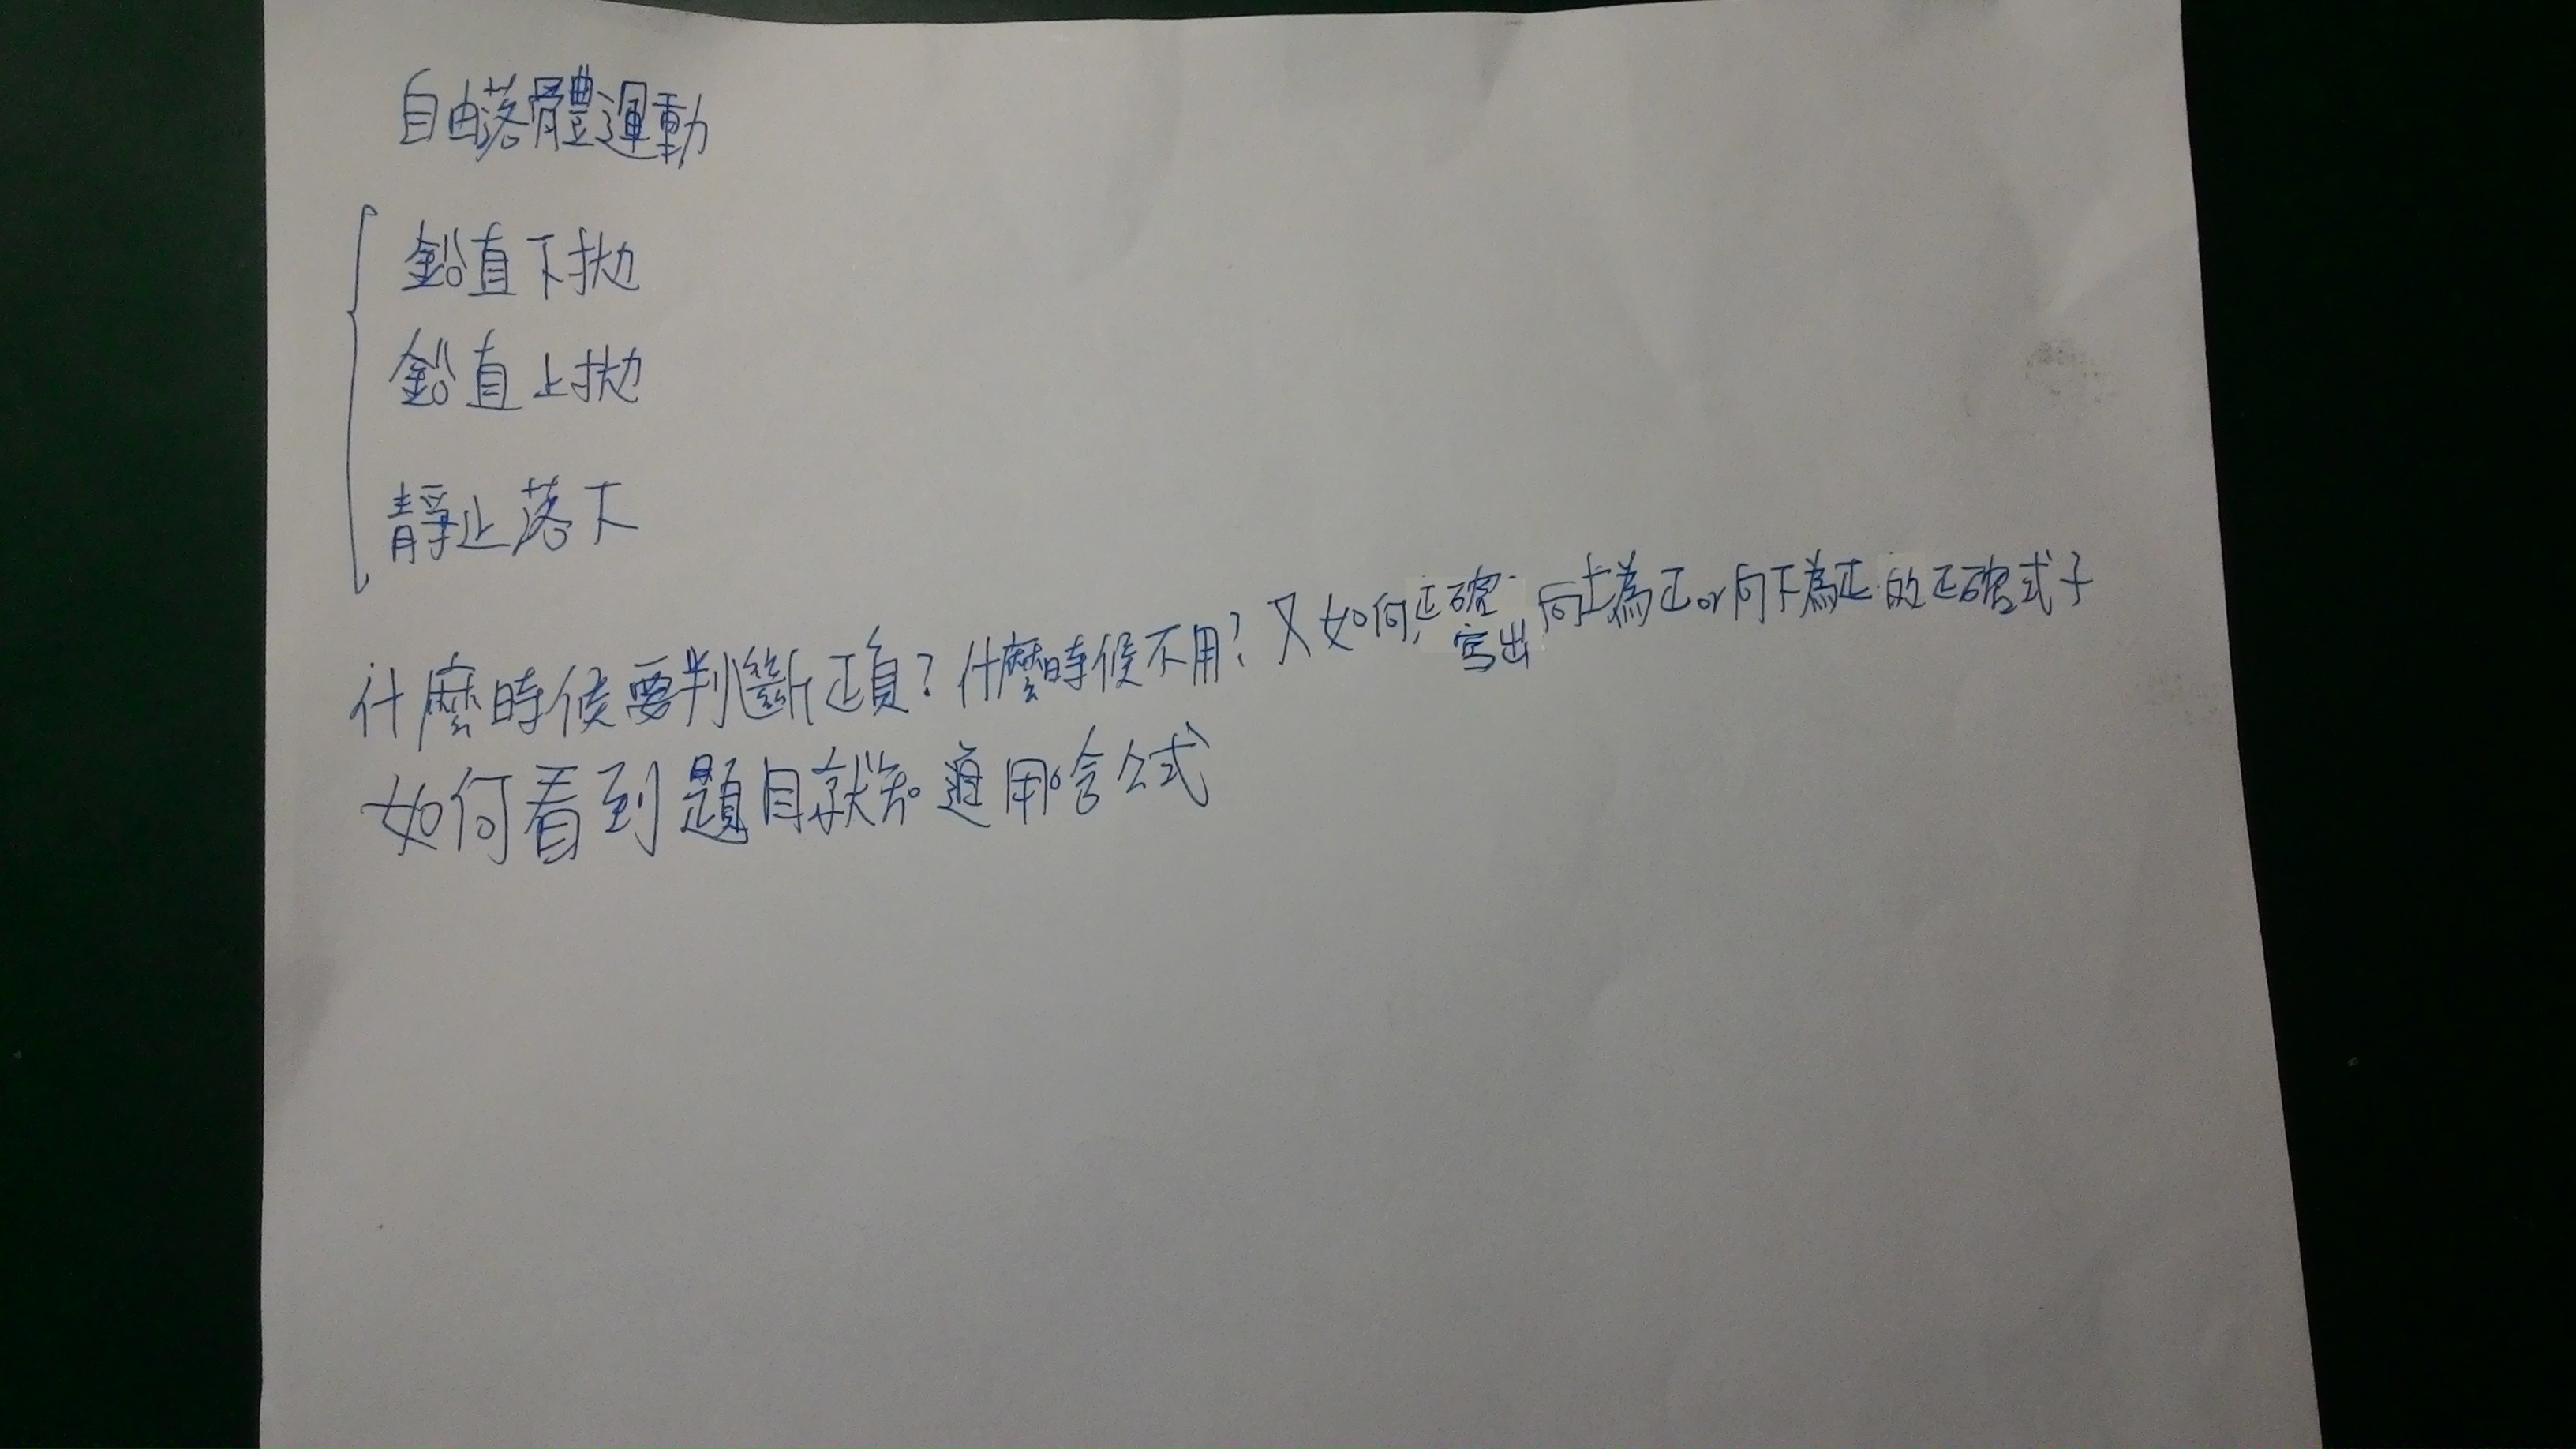 自由落體運動
鉛直下拋
鉛直上拋
靜止落下
什麼時候要判斷正負?什麼時候不用?又如何正確寫出向上為正or向下為正的正確式子
如何看到題目就知適用啥公式